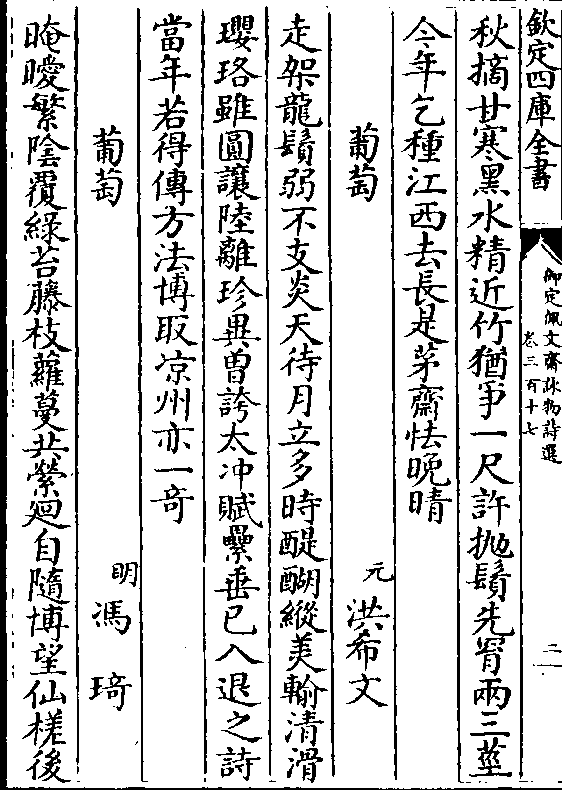 欽定四庫全書
御定佩文齋詠物詩選
卷三百十七
二
秋摘甘寒黑水精近竹猶爭一尺許拋鬚先罥兩三莖
今年乞種江西去長是茅齋怯晚晴
葡萄
元
洪希文
走架龍鬚弱不支炎天待月立多時醍醐縱美輸清滑
瓔珞雖圓讓陸離珍異曽誇太冲賦纍垂已入退之詩
當年若得傳方法博取凉州亦一奇
葡萄
明
馮琦
晻曖繁陰覆綠苔藤枝蘿蔓共縈廻自隨博望仙槎後